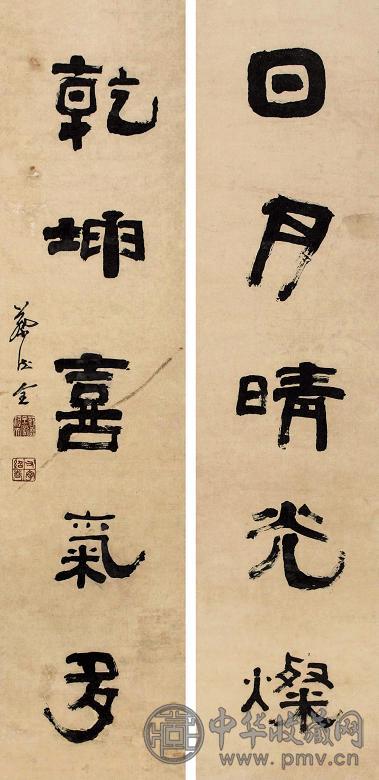 日月晴光燦
乾坤喜氣多
中华收藏网
www.pmv.cn